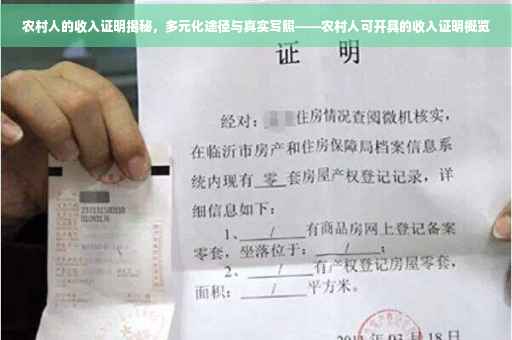 农村人的收入证明揭秘，多元化途径与真实写照——农村人可开具的收入证明概览
证 明
经对：住房情况查阅微机核实，
在临沂市房产和住房保障局档案信息系
统内现有 零 套房屋产权登记记录，详
细信息如下：
1、 / 有商品房网上登记备案
零套，坐落位于： / ；
2、 / 有产权登记房屋零套，
面积： / 平方米。
月 18 日